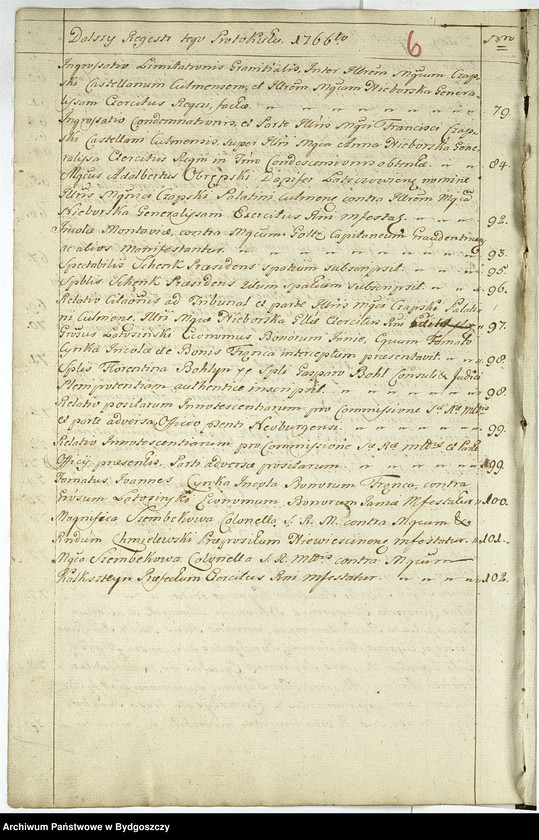 Dalszy Regestr tego Protokułu. 1766to
6
Ingrossatio Limitationis Granitialis, Inter Illrem Mgcum Czap-
ski Castellanum Culmensem, et Illrem Mgcam Nieborska Genera-
lissam Exercitus Regni, facta. 79.
Ingrossatio Condemnationis, et Parte Illris Mgci Francisci Czap-
ski Castellani Culmensis, super Illri Mgca Anna Nieborska Gene-
ralissa Exercitus Regni in Trino Condescensionis obtenta. 84.
Mgcus Adalbertus Dapifer nomine
Illris Mgnici Czapski Palatini Culmens contra Illrem Mgca
Nieborska Generalissam Exercitus Rni Mfestat. 92.
Incolæ Montaviæ, contra Mgcum Goltz Capitaneum Graudentinen
ac alios Manifestantur. 93.
Spectabilis Schenk Præsidens spatium subscripsit. 95.
Spblis Schenk Præsidens 2dum spatium subscripsit. 96.
Relatio Citaonis ad Tribunal et parte Illris Mgci Czapski Palati-
ni Culmens, Illri Mgcæ Nieborska Exercitus Rni 97.
Grosus Latosinski Economus Bonorum Janiæ, Equum Famato
Cyrtka Incolæ de Bonis Tranca interceptum præsentavit. 98.
Splis Florentina Bohlyn Spli Gasparo Bohl Consuli & Judici
Plenipotentiam authentice inscripsit. 98.
Relatio positarum Innotescentiarum pro Commissione Sæ Ræ Mttis
et parte adversa Officio præsenti Neuburgensi. 99.
Relatio Innotescentiarum pro Commissione Sæ Ræ Mttis et Parte
Officij præsentis, Parti adversæ positarum. 99.
Famatus Joannes Cyrtka Incola Bonorum Tranca, contra
Grosum Latosinski Economum Bonorum Janiæ Mfestatur. 100.
Magnifica Szembekowa Colonella S. R. M. contra Mgcum &
Rndum Chmielewski Præpositum Niewiescinens. Mfestatur. 101.
Mgca Szembekowa Colonella S. R. Mttis contra Mgcum
Kalksteyn Præfectum Exercitus Rni Mfestatur. 102.
Archiwum Państwowe w Bydgoszczy